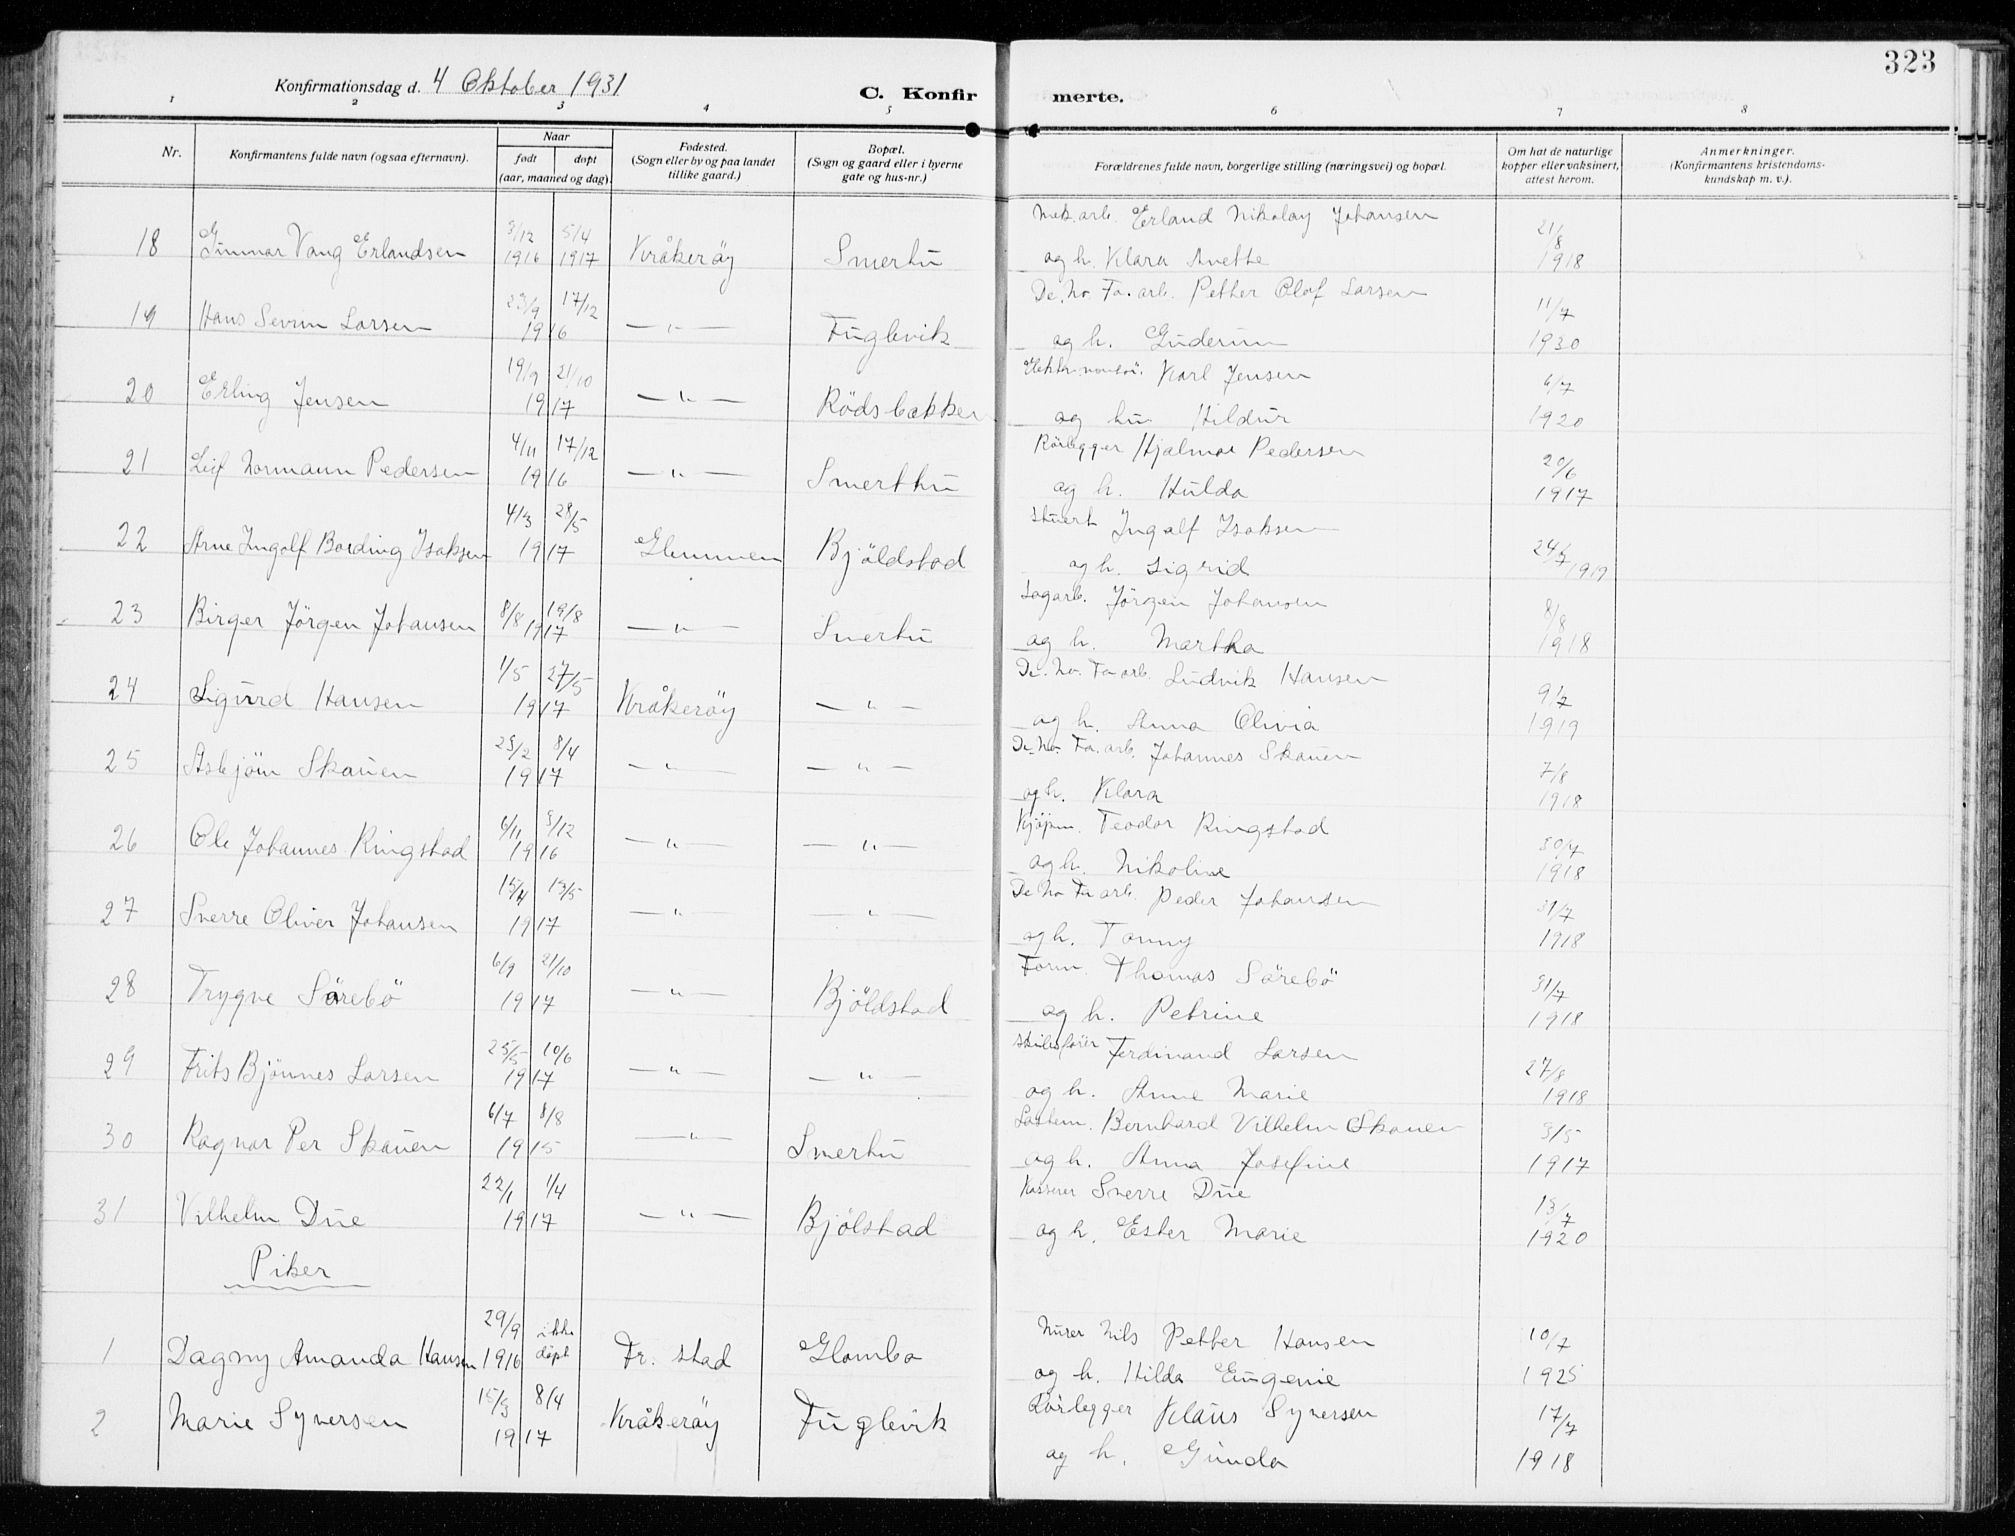 323
Konfirmationsdag d. 4 Oktober 1931
C. Konfir merte.
1 2 3 4 5 6 7 8
Nr.
Konfirmantens fulde navn (ogsaa efternavn).
Naar
født døpt
(aar, maaned og dag).
Fødested.
(Sogn eller by og paa landet
tillike gaard.)
Bopæl.
(Sogn og gaard eller i byerne
gate og hus-nr.)
Forældrenes fulde navn, borgerlige stilling (næringsvei) og bopæl.
Om hat de naturlige
kopper eller vaksinert,
attest herom.
Anmerkninger.
(Konfirmantens kristendoms-
kundskap m. v.).
3/12 5/4 Mek. arb. Erland Nikolay Johansen 21/8
18 Gunnar Vang Erlandsen 1916 1917 Kråkeröy Smertu og h. Klara Anette 1918
23/9 17/12 De. No. Fa. arb. Petter Olof Larsen 11/7
19 Hans Sevrin Larsen 1916 — " — Fuglevik og h. Guderun 1930
19/9 21/10 Karl Jensen 6/7
20 Erling Jensen 1917 — " — Rödsbakken og hu Hildur 1920
4/11 17/12 Rörlegger Hjalmar Pedersen 20/6
21 Leif Normann Pedersen 1916 — " — Smerthu og h. Hulda 1917
4/3 28/5 Stuert Ingolf Isaksen
22 Arne Ingolf Bording Isaksen 1917 Glemmen Bjöldstad og h. Sigrid 24/7 1919
8/8 19/8 Sagarb. Jörgen Johansen 8/8
23 Birger Jörgen Johansen 1917 — " — Smertu og h. Martha 1918
1/5 27/5 De. No. Fa arb. Ludvik Hansen 9/7
24 Sigurd Hansen 1917 Kråkeröy — " — og h. Anna Olivia 1919
25/2 8/4 De. No. Fa. arb. Johannes Skauen 7/8
25 Asbjörn Skauen 1917 — " — — " — og h. Klara 1918
6/11 3/12 Kjöpm. Teodor Ringstad 30/7
26 Ole Johannes Ringstad 1916 — " — — " — og h. Nikoline 1918
15/4 13/5 De No Fa arb. Peder Johansen 31/7
27 Sverre Oliver Johansen 1917 — " — — " — og h. Tonny 1918
6/9 21/10 Form. Thomas Sörebö 31/7
28 Trygve Sörebö 1917 — " — Bjöldstad og h. Petrine 1918
25/5 10/6 Ferdinand Larsen 27/8
29 Frits Bjönnes Larsen 1917 — " — — " — og h. Anne Marie 1918
6/7 8/8 Bernhard Vilhelm Skauen 3/5
30 Ragnar Per Skauen 1915 — " — Smertu og h. Anna Josefine 1917
22/1 1/4 Kasserer Sverre Due 13/7
31 Vilhelm Due 1917 — " — Bjölstad og h. Ester Marie 1920
Piker
29/9 ikke Murer Nils Petter Hansen 10/7
1 Dagny Amanda Hansen 1916 döpt Fr. stad Glombo og h. Hilda Eugenie 1925
15/3 8/4 Rörlegger Klaus Syversen 17/7
2 Marie Syversen 1917 Kråkeröy Fuglevik og h. Gunda 1918